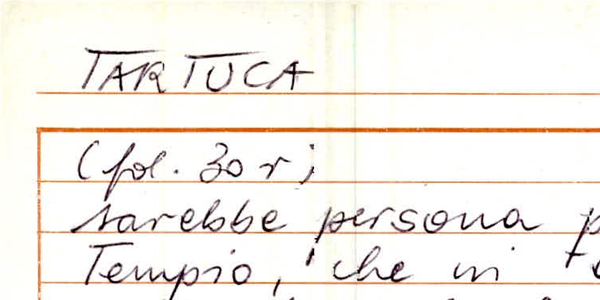 TARTUCA
(fol. 30 r)
sarebbe persona p
Tempio, che in